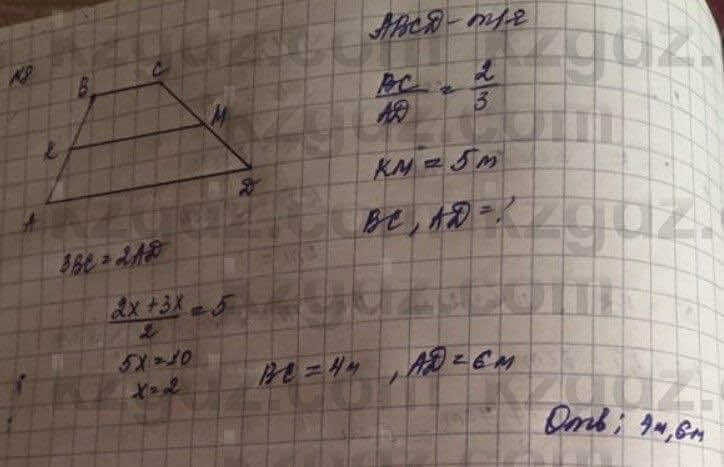 №8
ABCD - тр/я
BC/AD = 2/3
KM = 5 м
BC, AD = ?
B C
K M
A D
3BC = 2AD
(2x + 3x)/2 = 5
5x = 10
x = 2
BC = 4м , AD = 6м
Отв: 4м, 6м
kzgdz.com